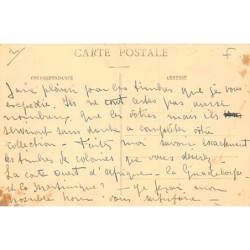 CARTE POSTALE
CORRESPONDANCE
ADRESSE
plaisir pour les timbres que je vous
expédie. Ils ne sont certes pas aussi
nombreux que les vôtres mais ils
serviront sans doute a compléter vôtre
collection - Faites moi savoir exactement
les timbres de colonies que vous désirez -
La carte ouest d'Afrique - la Guadeloupe
et la Martinique? - je ferai mon
possible pour vous satisfaire -